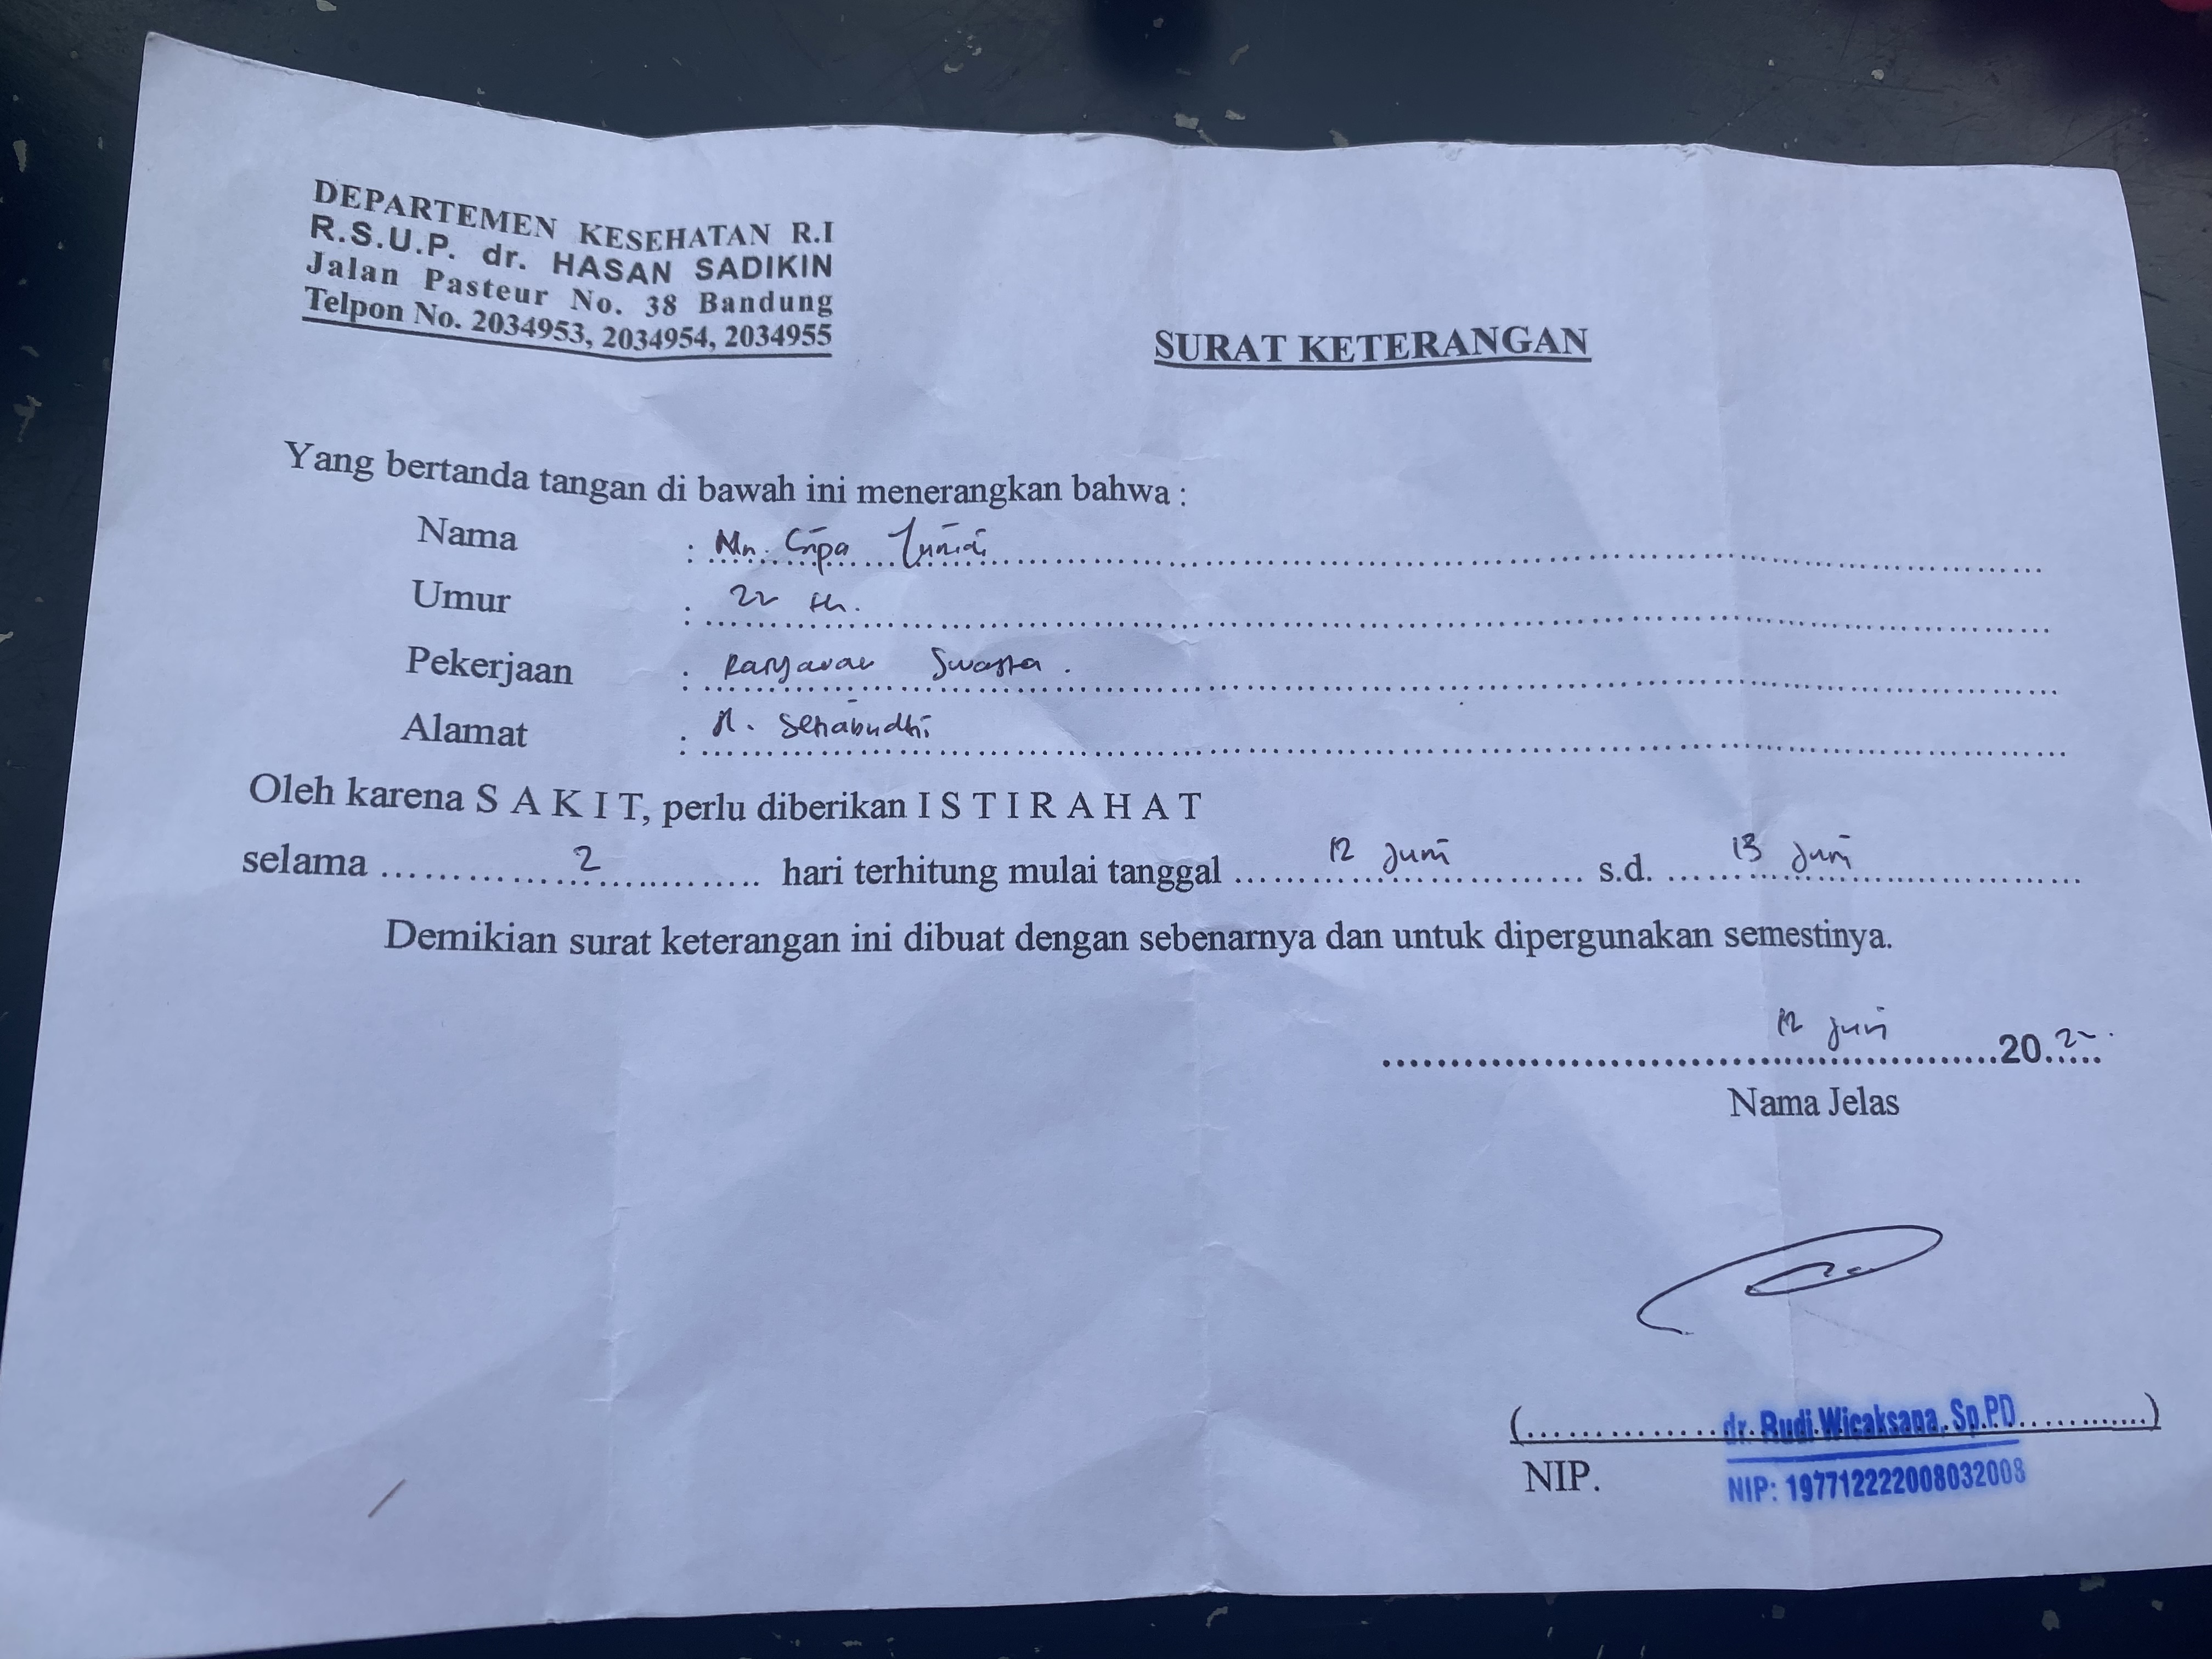 DEPARTEMEN KESEHATAN R.I
R.S.U.P. dr. HASAN SADIKIN
Jalan Pasteur No. 38 Bandung
Telpon No. 2034953, 2034954, 2034955
SURAT KETERANGAN
Yang bertanda tangan di bawah ini menerangkan bahwa :
Nama :
Umur : 22 th.
Pekerjaan : Karyawan Swasta.
Alamat :
Oleh karena S A K I T, perlu diberikan I S T I R A H A T
selama 2 hari terhitung mulai tanggal 12 Juni s.d. 13 Juni
Demikian surat keterangan ini dibuat dengan sebenarnya dan untuk dipergunakan semestinya.
12 Juni 20 22.
Nama Jelas
(dr. Rudi Wicaksana, Sp.PD)
NIP. NIP: 197712222008032008